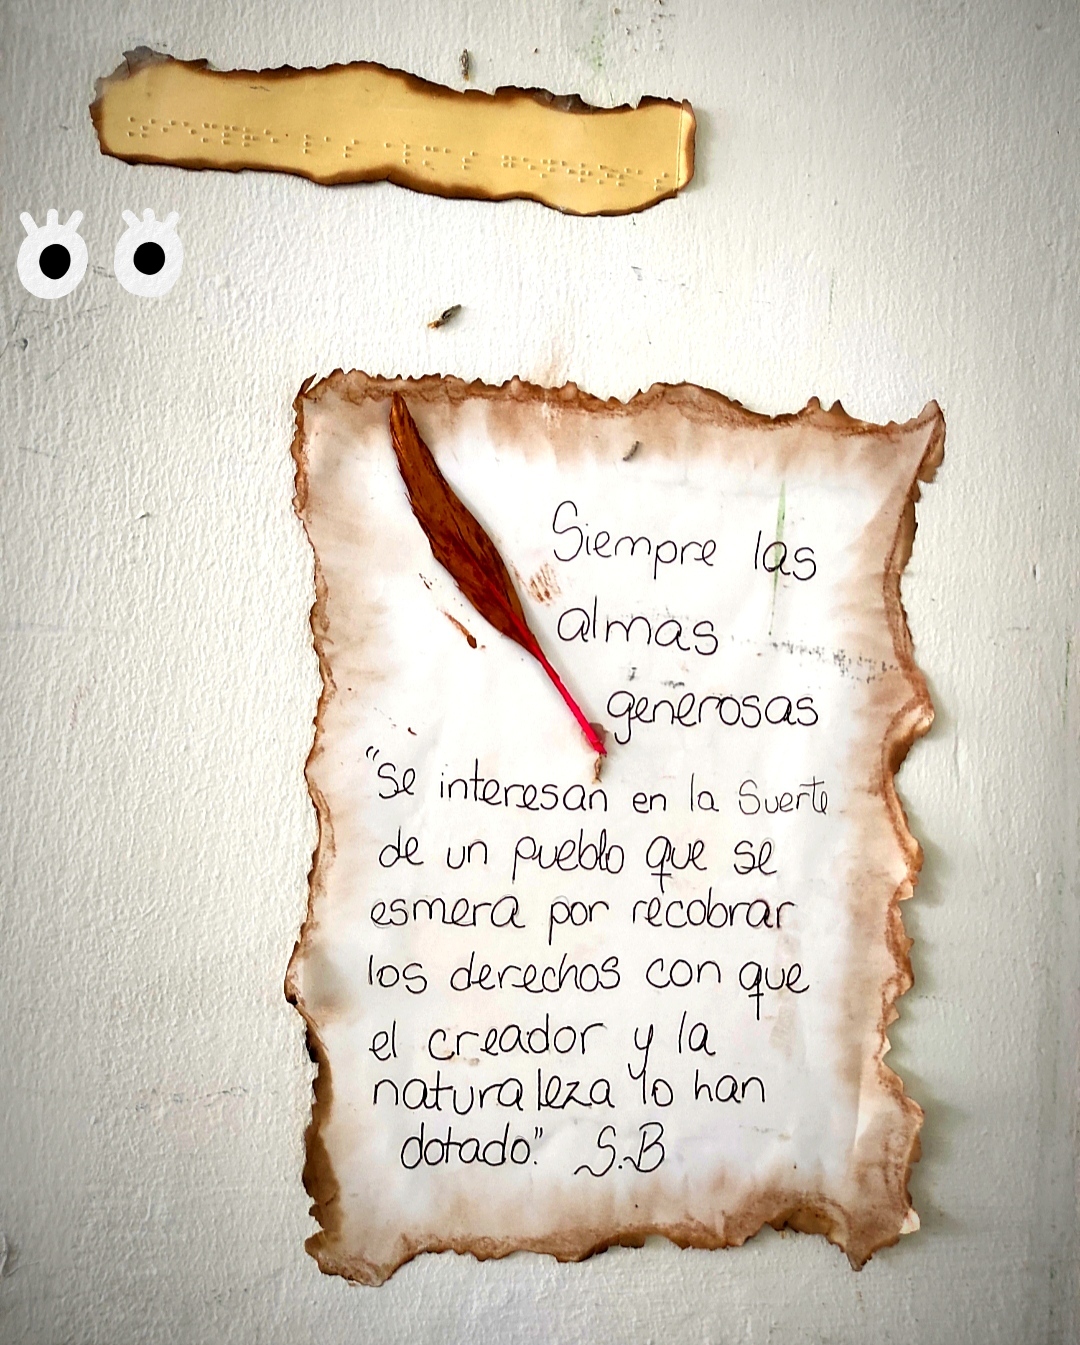 Siempre las
almas
generosas
"Se interesan en la Suerte
de un pueblo que se
esmera por recobrar
los derechos con que
el creador y la
naturaleza lo han
dotado." S.B